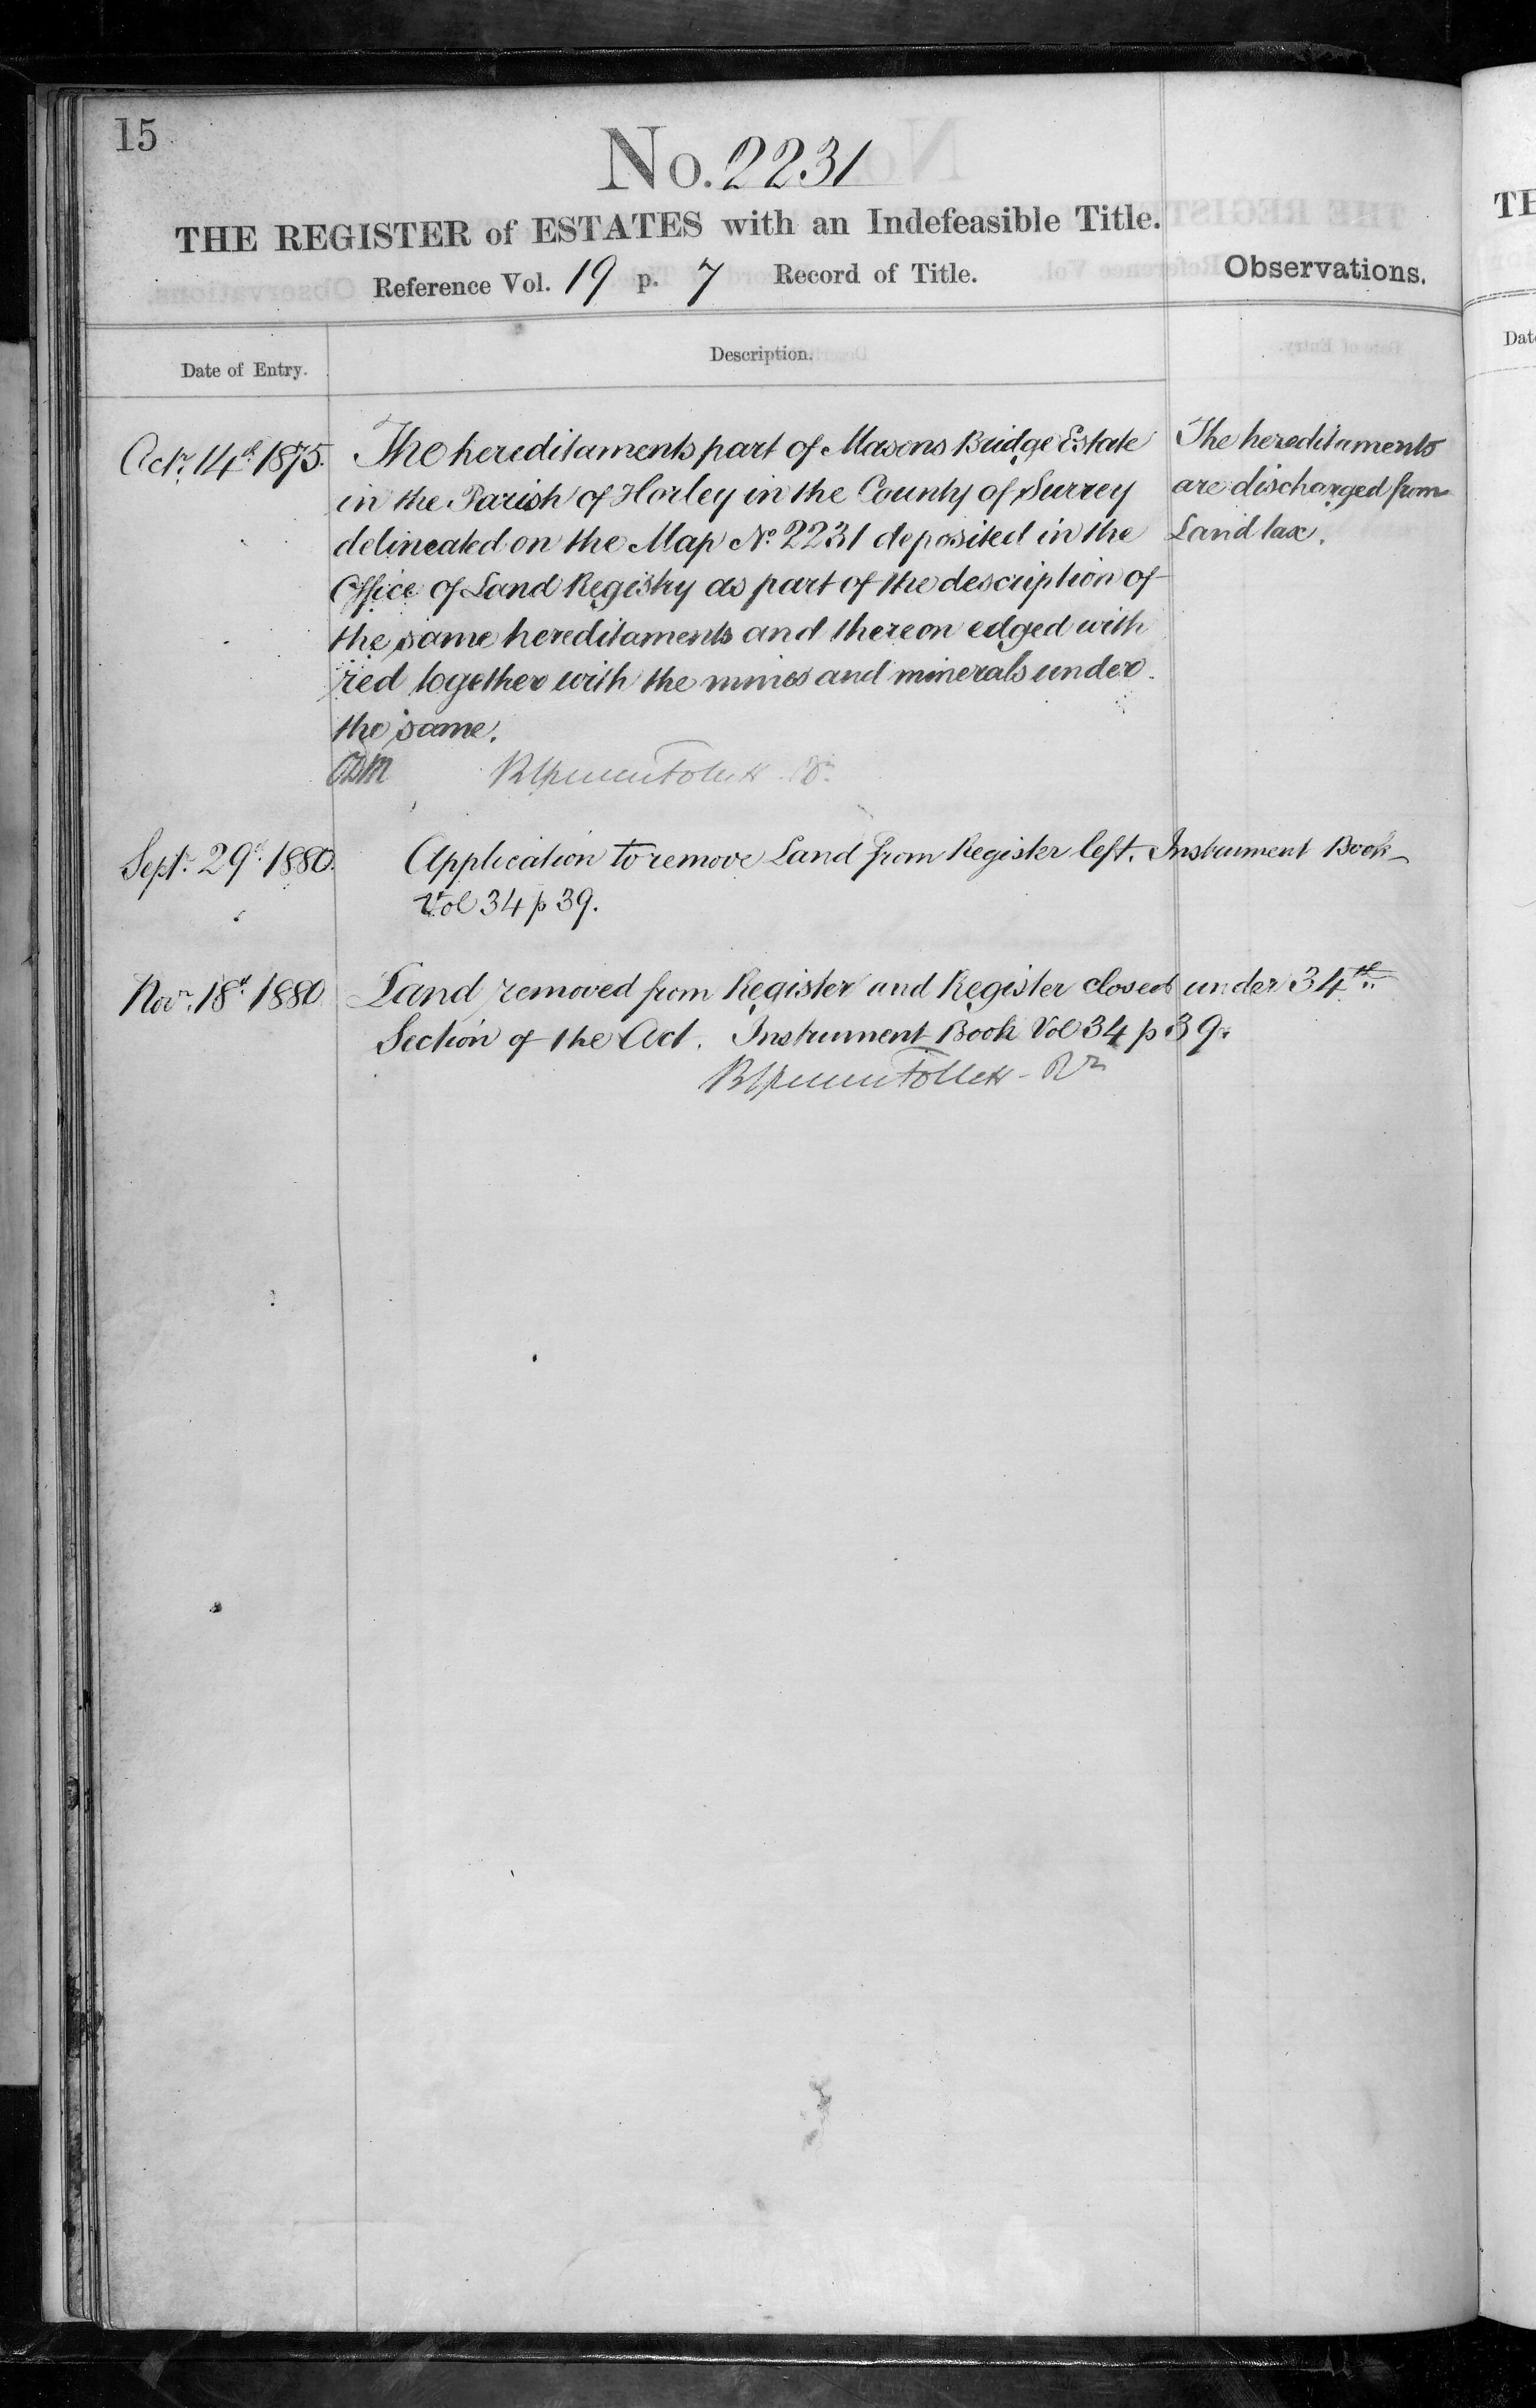 15
No. 2231
THE REGISTER of ESTATES with an Indefeasible Title.
Reference Vol. 19 p. 7 Record of Title.
Observations.
Date of Entry.
Description.
Octr. 14th 1875.
The hereditaments part of Masons Bridge Estate
in the Parish of Horley in the County of Surrey
delineated on the Map No. 2231 deposited in the
Office of Land Registry as part of the description of
the same hereditaments and thereon edged with
red together with the mines and minerals under
the same.
The hereditaments
are discharged from
Land tax.
Follett
Septr. 29th 1880.
Application to remove Land from Register left. Instrument Book
Vol 34 p 39.
Novr. 18th 1880
Land removed from Register and Register closed under 34th
Section of the Act. Instrument Book Vol 34 p 39.
Follett
TH
Dat